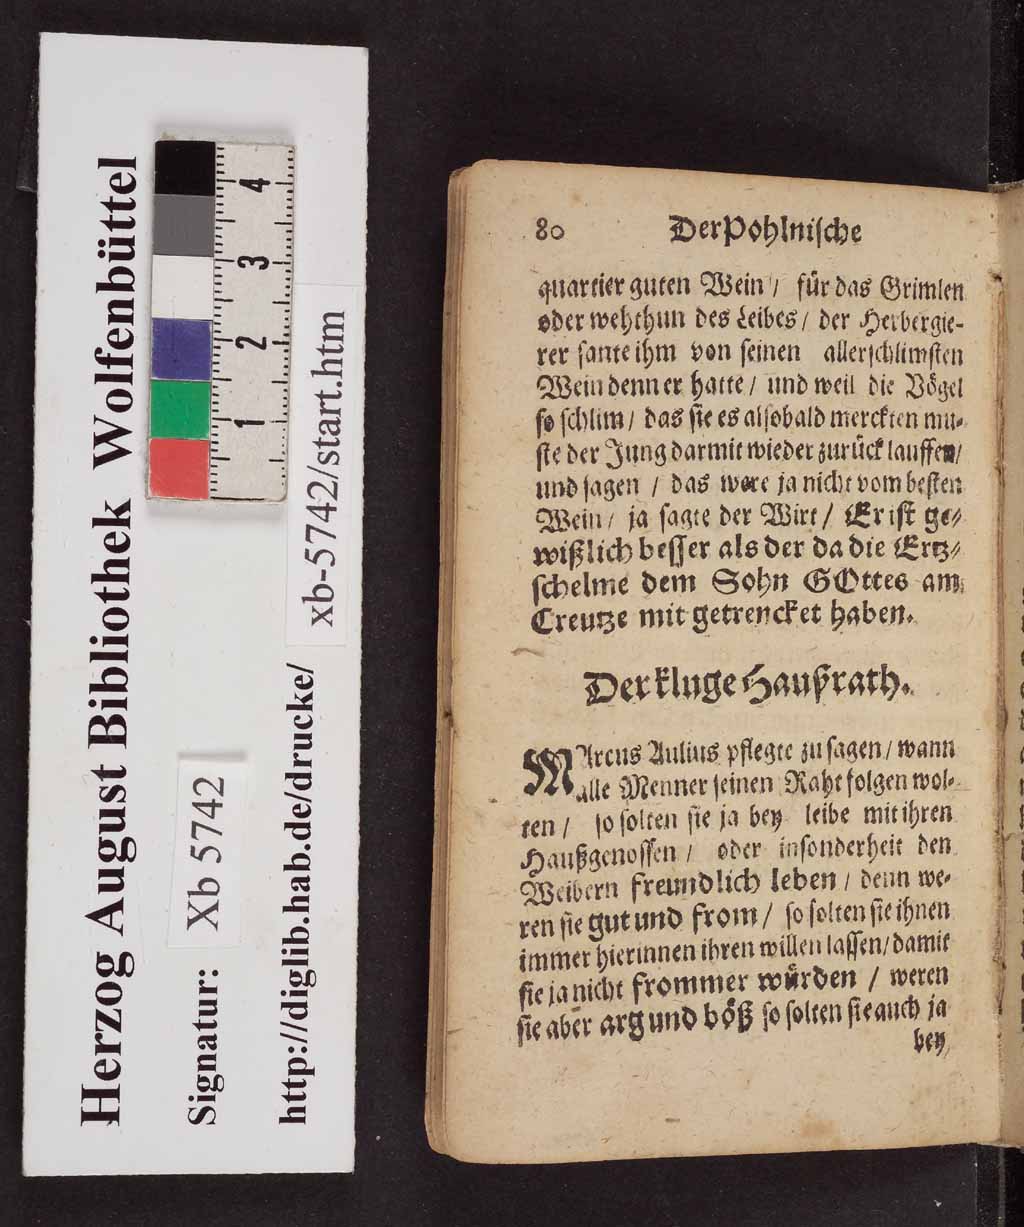 Herzog August Bibliothek Wolfenbüttel
Signatur: Xb 5742
http://diglib.hab.de/drucke/ xb-5742/start.htm
1 2 3 4
80 Der Pohlnische
quartier guten Wein / für das Grimlen
oder wehthun des Leibes / der Herbergie-
rer sante ihm von seinen allerschlimsten
Wein denn er hatte / und weil die Vögel
so schlim / das sie es alsobald merckten mu-
ste der Jung darmit wieder zurück lauffen /
und sagen / das were ja nicht vom besten
Wein / ja sagte der Wirt / Er ist ge-
wißlich besser als der da die Ertz-
schelme dem Sohn GOttes am
Creutze mit getrencket haben.
Der kluge Haußrath.
MArcus Aulius pflegte zu sagen / wann
alle Menner seinen Raht folgen wol-
ten / so solten sie ja bey leibe mit ihren
Haußgenossen / oder insonderheit den
Weibern freundlich leben / denn we-
ren sie gut und from / so solten sie ihnen
immer hierinnen ihren willen lassen / damit
sie ja nicht frommer würden / weren
sie aber arg und böß so solten sie auch ja
bey